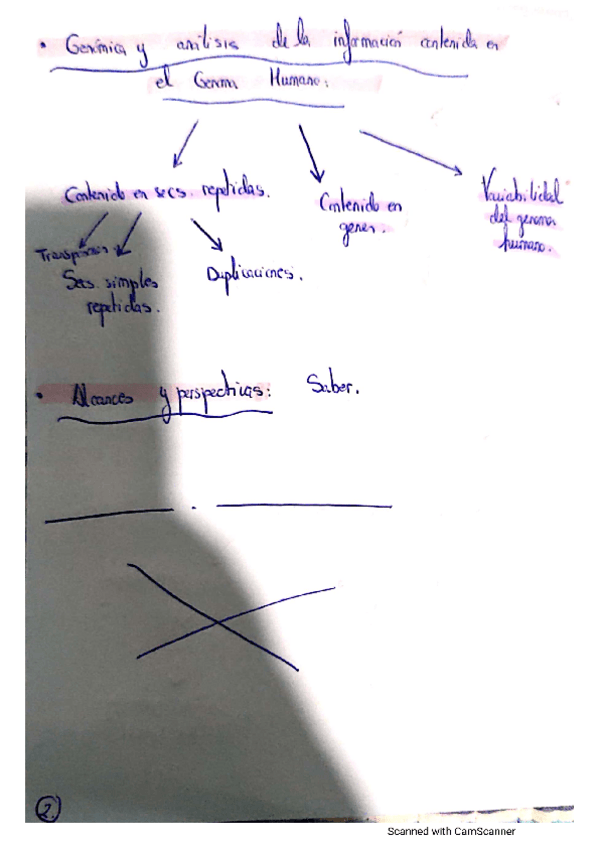 • Genómica y análisis de la información contenida en
el Genoma Humano.
Contenido en secs. repetidas.
Contenido en
genes.
Variabilidad
del genoma
humano.
Transposones
Secs. simples
repetidas.
Duplicaciones.
• Alcances y perspectivas: Saber.
2.
Scanned with CamScanner